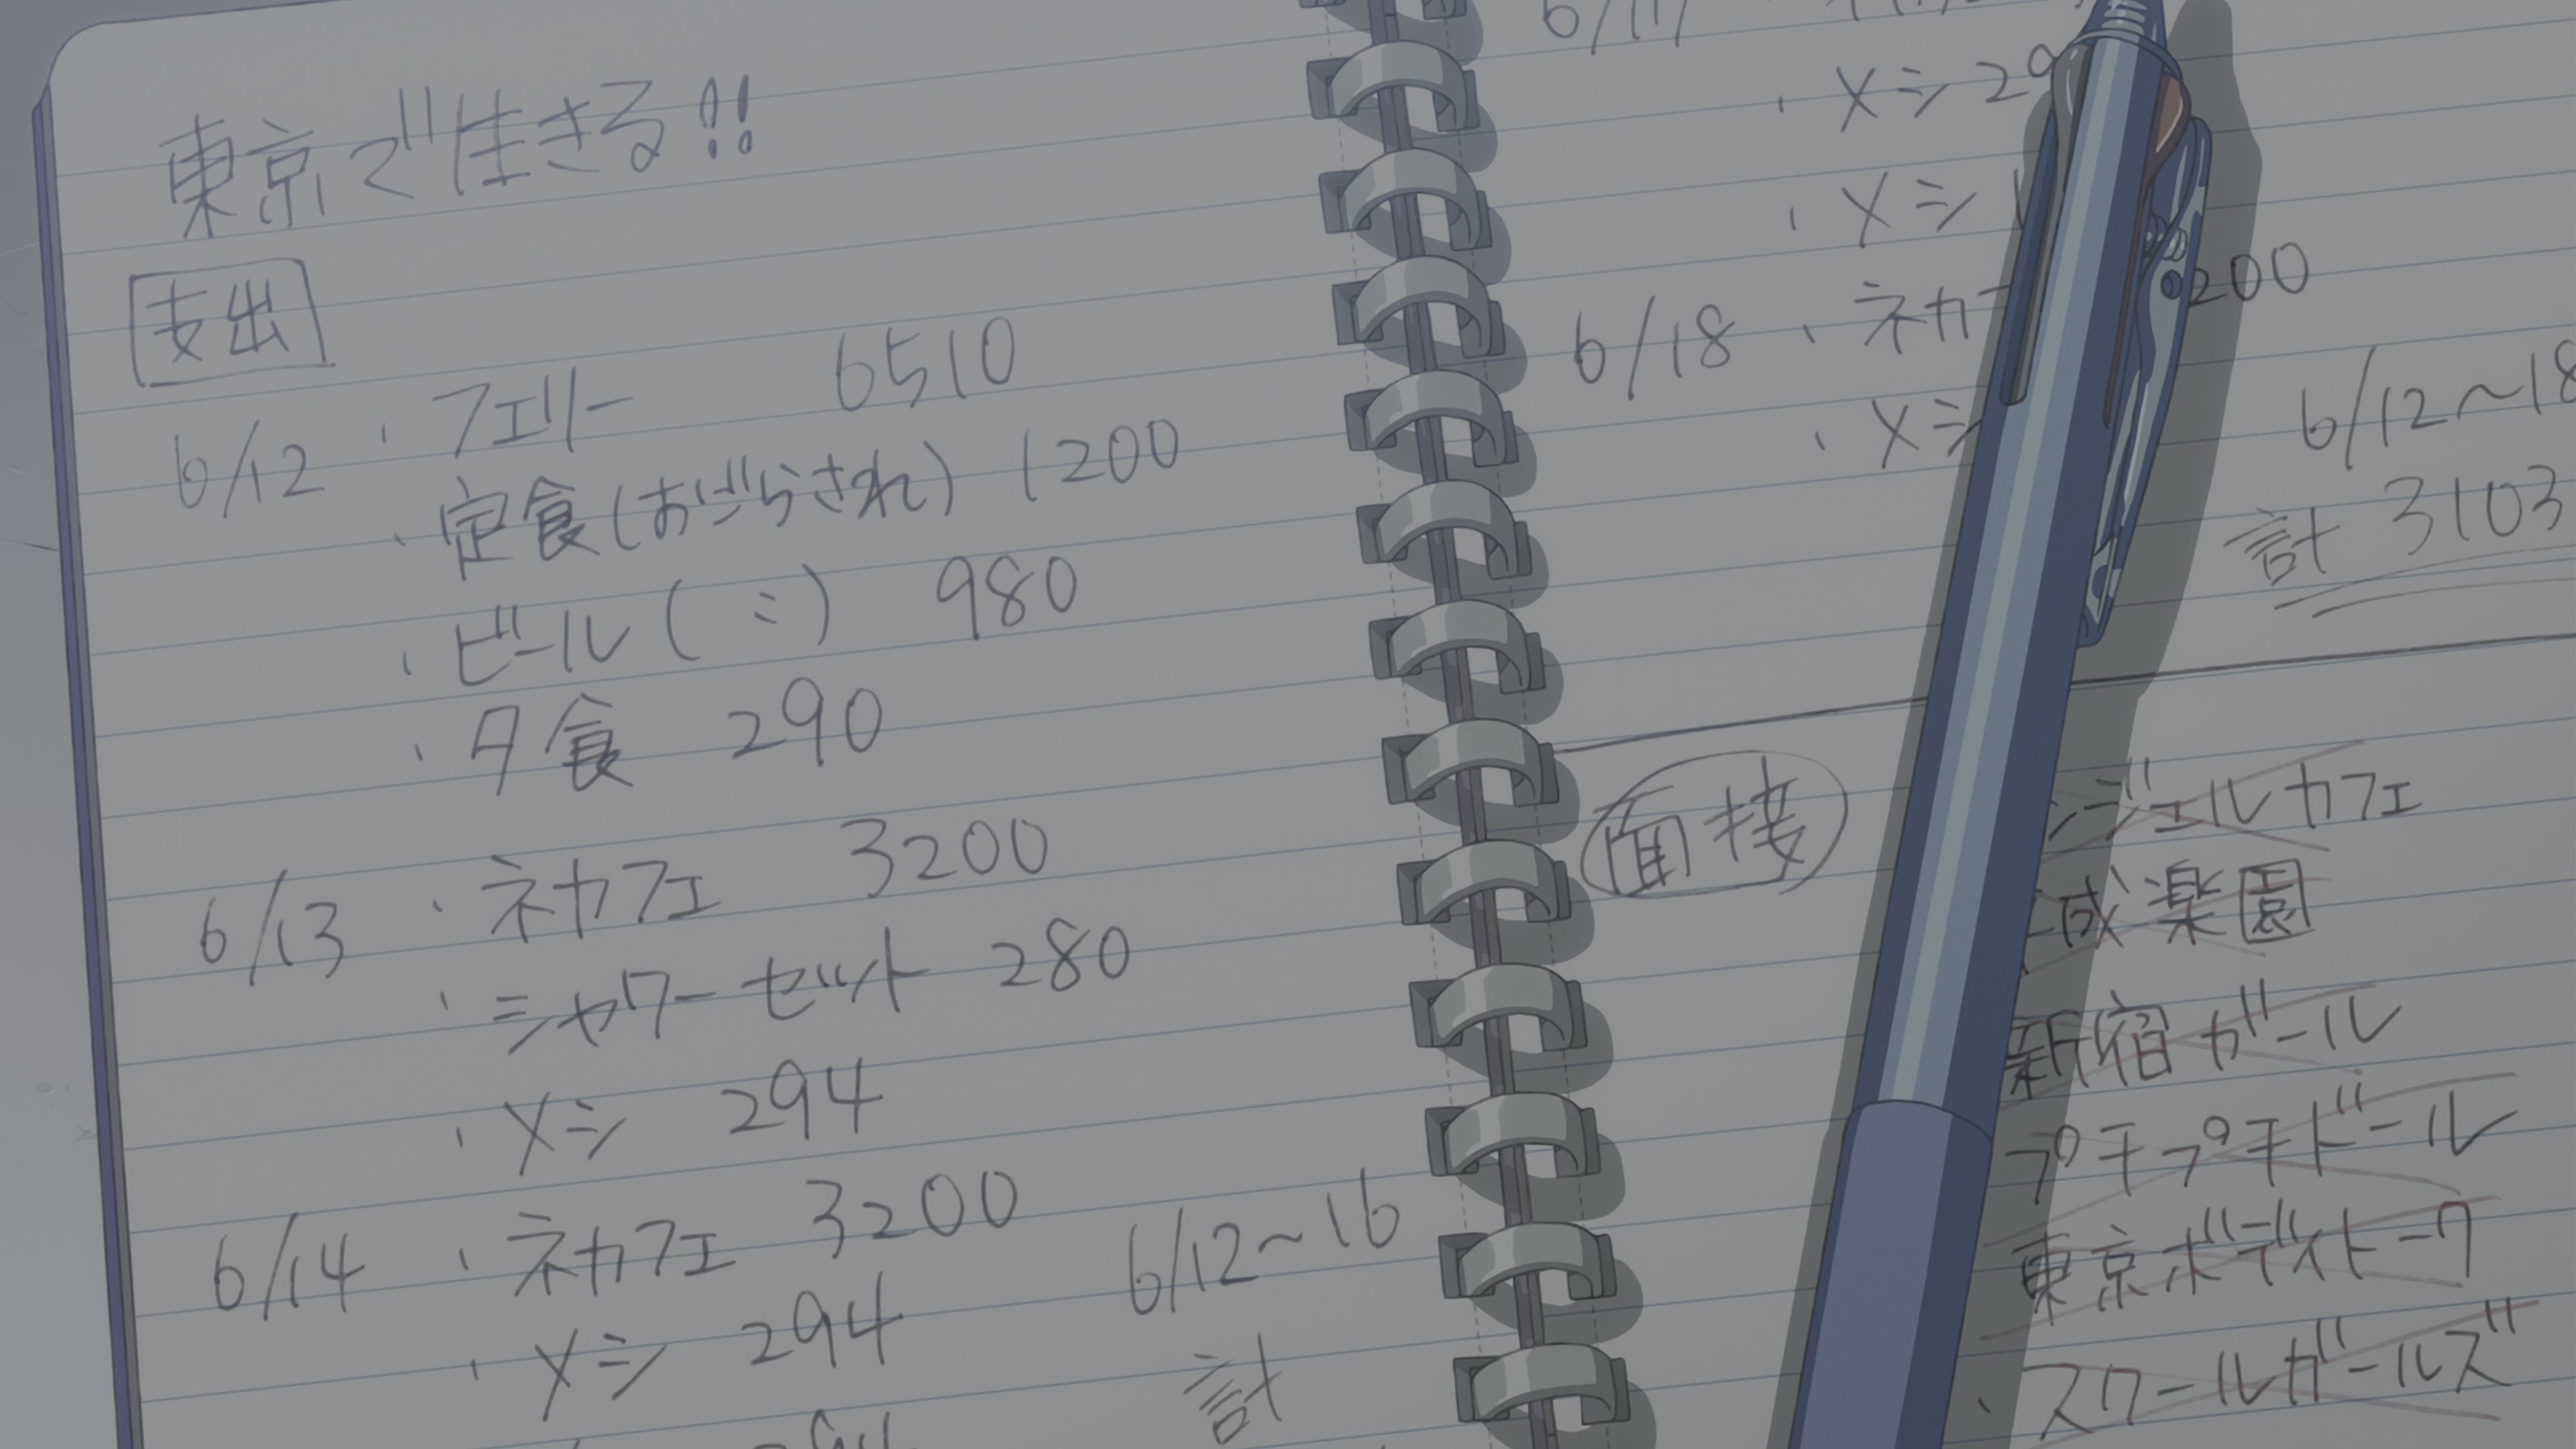 東京で生きる!!
支出
6/12 ・フェリー 6510
・定食(おごらされ) 1200
・ビール( 〃 ) 980
・夕食 290
6/13 ・ネカフェ 3200
・シャワーセット 280
・メシ 294
6/14 ・ネカフェ 3200
・メシ 294
6/12~16
計
6/17
・メシ 29
・メシ
6/18 ・ネカフ 200
・メシ
6/12~18
計 3103
面接
ジェルカフェ
成楽園
新宿ガール
プチプチドール
東京ボディトーク
・スクールガールズ